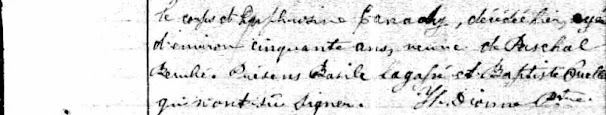 le corps d'Euphrosine Canady, décédée hier, agée
d'environ cinquante ans, veuve de Paschal
Présens Basile Lagassé et Baptiste Ouellet
qui n'ont su signer. H. Dionne Ptre.